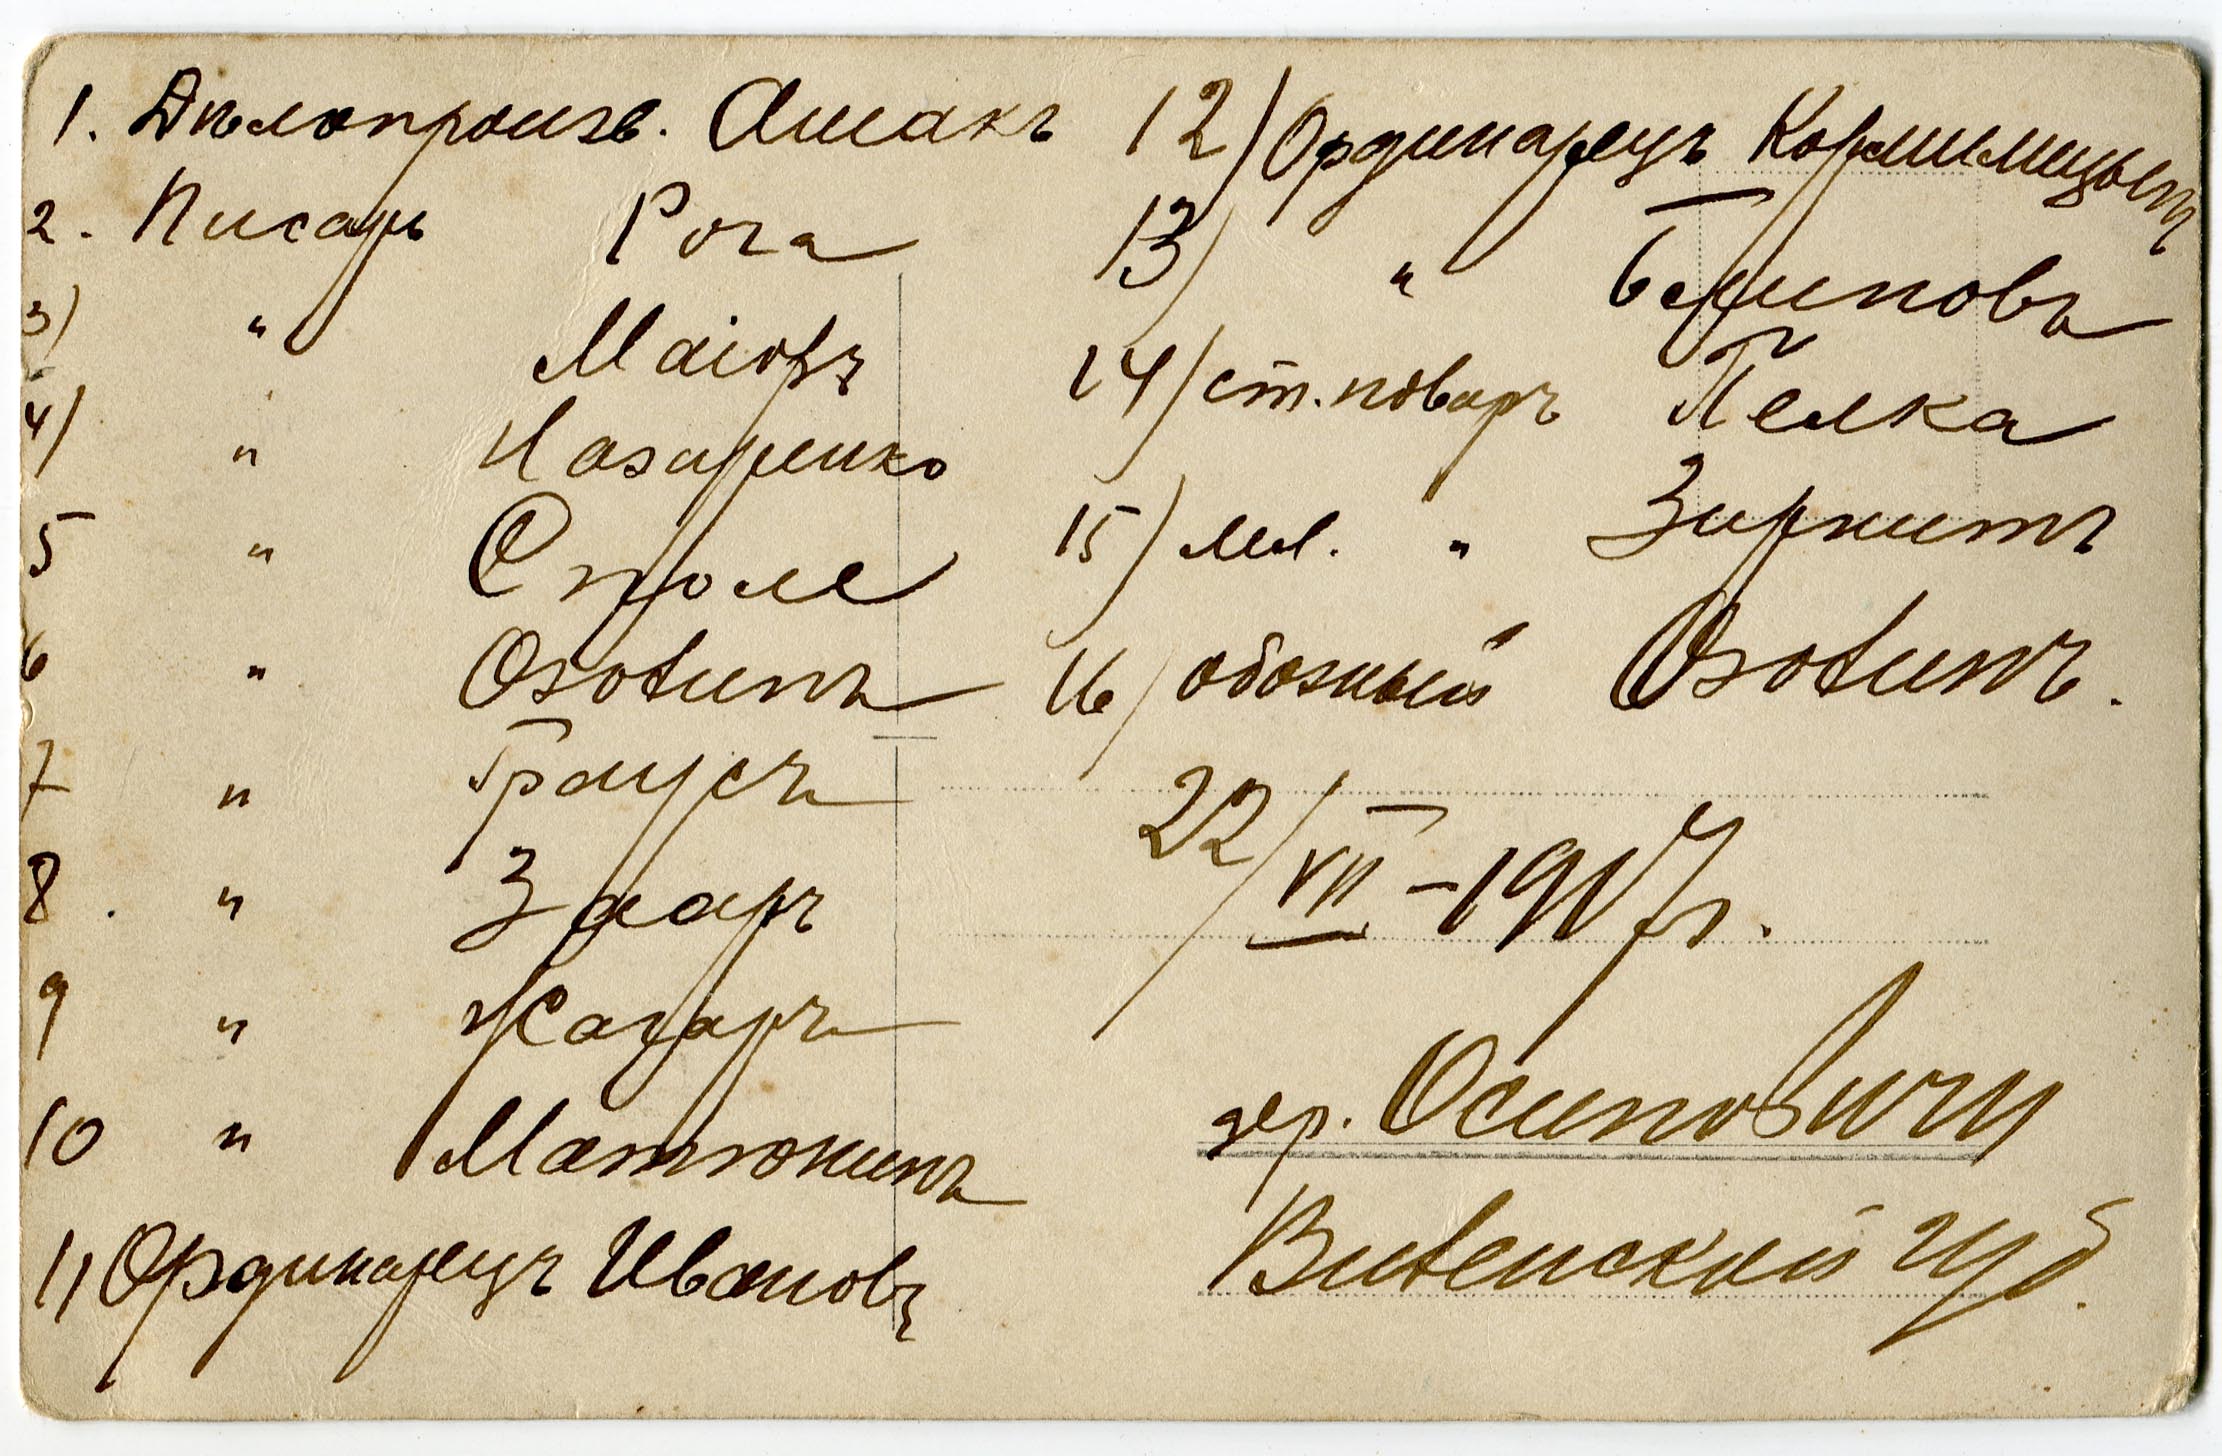 1. Дѣлопроизв. Ашакъ
2. Писарь Рога
3) " Маіоръ
4) " Назаренко
5 " Строме
6 " Озолинъ
7 " Траусъ
8. " Заաръ
9 "
10 " Матюнинъ
11 Ординарецъ Ивановъ
12) Ординарецъ
13) "
14) ст. поваръ Пелка
15) мл. " Зирнитъ
16) обозный Озолинъ.
22/VII – 1917 г.
дер. Осиповичи
Виленской губ.